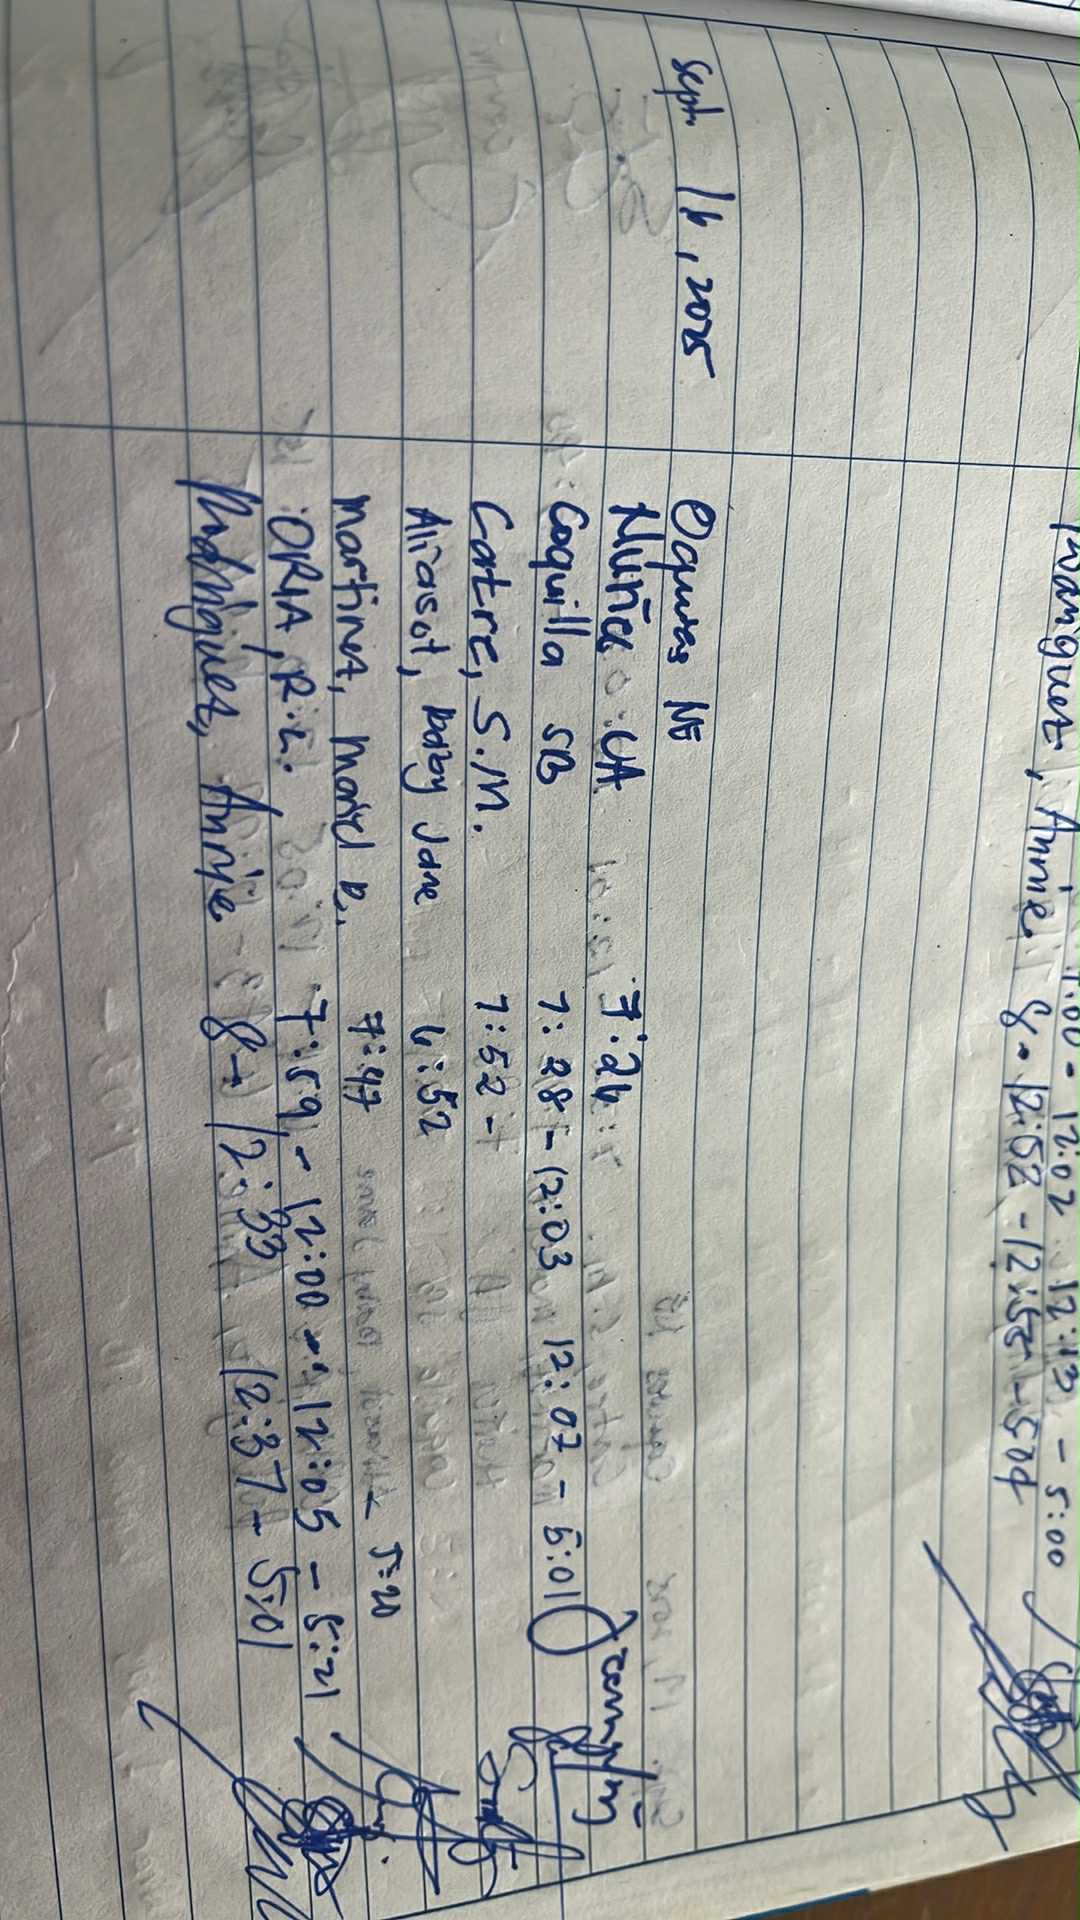 7:00 - 12:02 12:13 - 5:00
Annie 8 - 12:52 - 12:55 - 504
Sept. 16, 2025
Oquias NE
Nuñez UA 7:24
Coquilla SB 7:28 - 12:03 12:07 - 5:01
Catre, S.M. 7:52 -
Aliasot, Baby Jane 6:52
Martinez, Maria R. 7:47 - 5:20
ORIA, R.L. 7:59 - 12:00 - 12:05 - 5:21
Annie 8 - 12:33 - 12:37 - 5:01